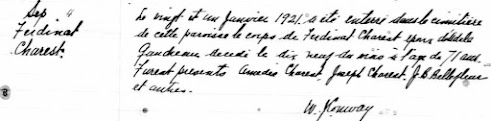 Sep 4
Ferdinat
Charest.
Le vingt et un Janvier 1921 a été enterré dans le cimetière
de cette paroisse le corps de Ferdinat Charest époux
décédé le dix neuf du mois à l'age de 71 ans.
Furent presents Amedée Charest, Joseph Charest, J.B. Bellefleur
et autres.
W. J Conway
8